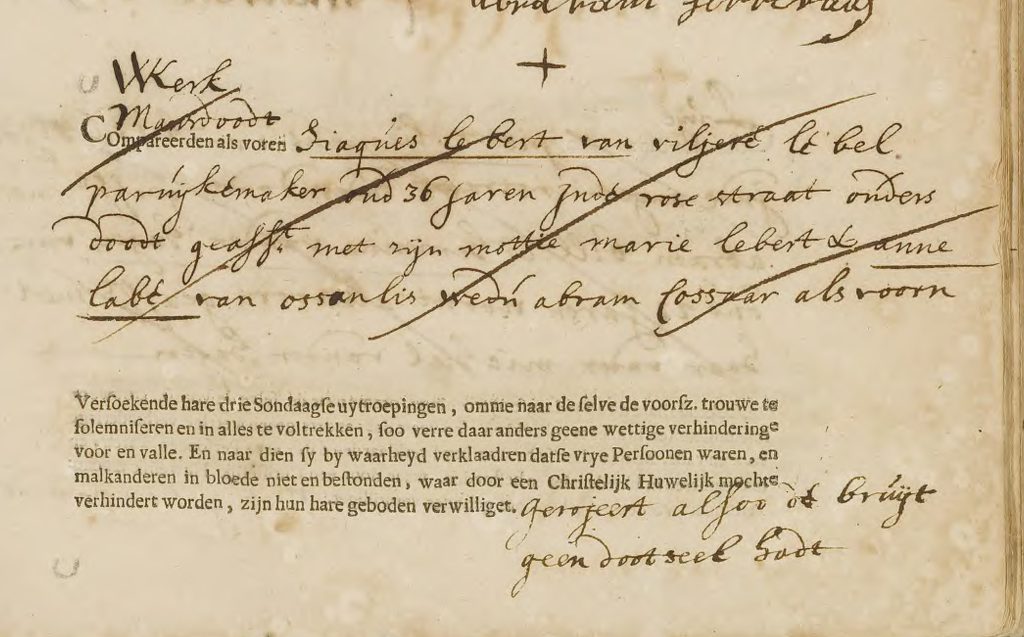 abraham
+
WKerk
Maardoodt
COmpareerden als voren Jiaques lebert van viljere le bel
paruijkemaker oud 36 Jaren Jnde rose straat ouders
doodt geasst met zijn mottie marie lebert & anne
labé van ossanlis wedu abram Cossaar als voorn
Versoekende hare drie Sondaagse uytroepingen, omme naar de selve de voorsz. trouwe te
solemniseren en in alles te voltrekken, soo verre daar anders geene wettige verhinderinge
voor en valle. En naar dien sy by waarheyd verklaadren datse vrye Persoonen waren, en
malkanderen in bloede niet en bestonden, waar door een Christelijk Huwelijk mochte
verhindert worden, zijn hun hare geboden verwilliget. gerojeert alsoo de bruijt
geen dootseel hadt